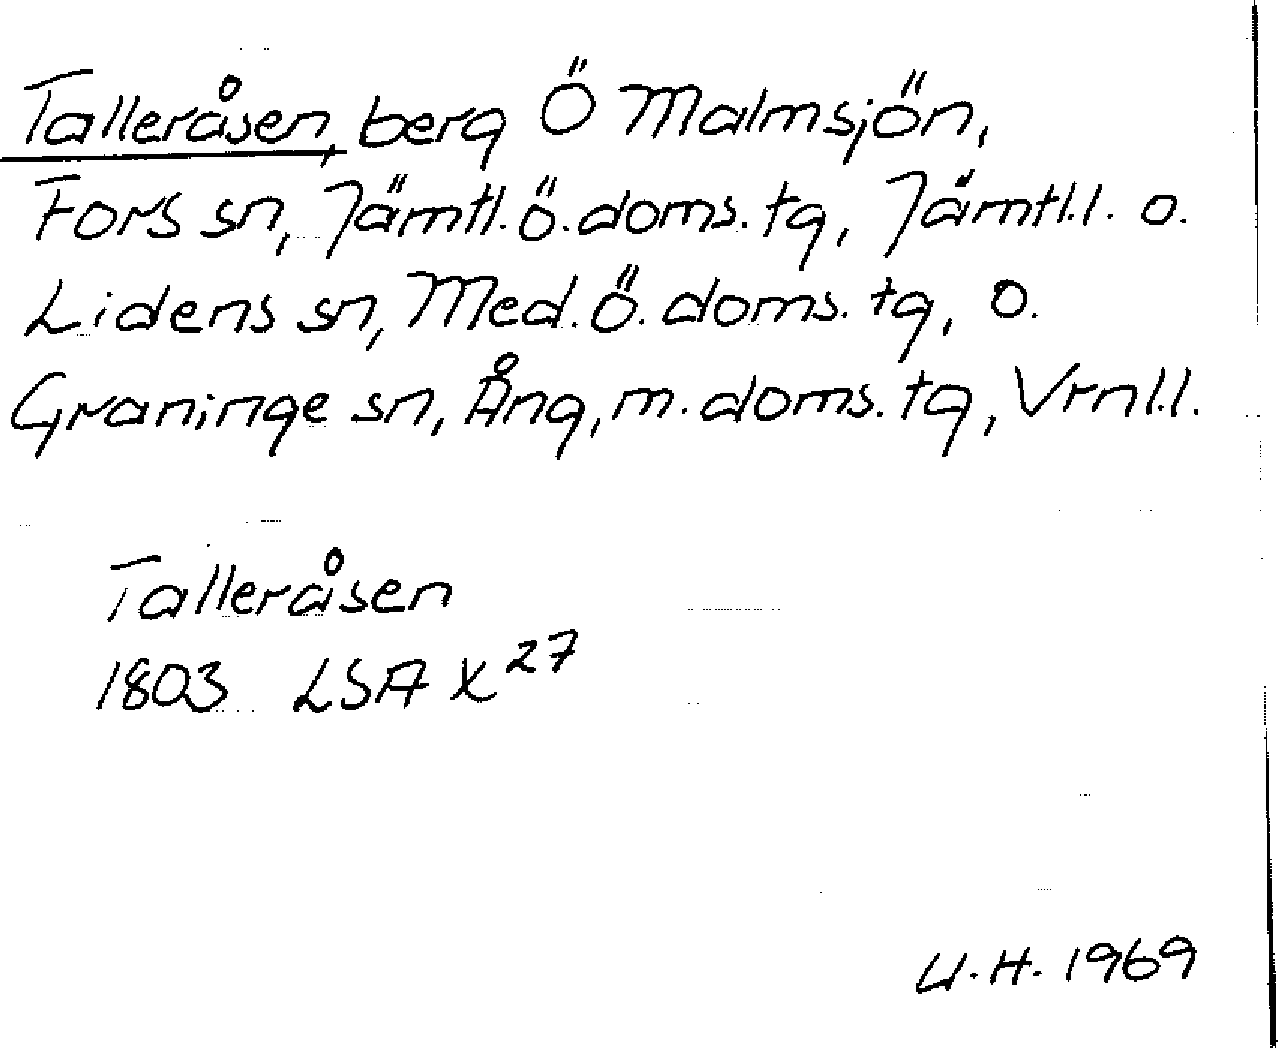 Talleråsen, berg Ö Malmsjön,
Fors sn, Jämtl. ö. doms. tg, Jämtl. l. o.
Lidens sn, Med. ö. doms. tg, o.
Graninge sn, Ång, m. doms. tg, Vrnl.l.
Talleråsen
1803 LSA X 27
U.H. 1969